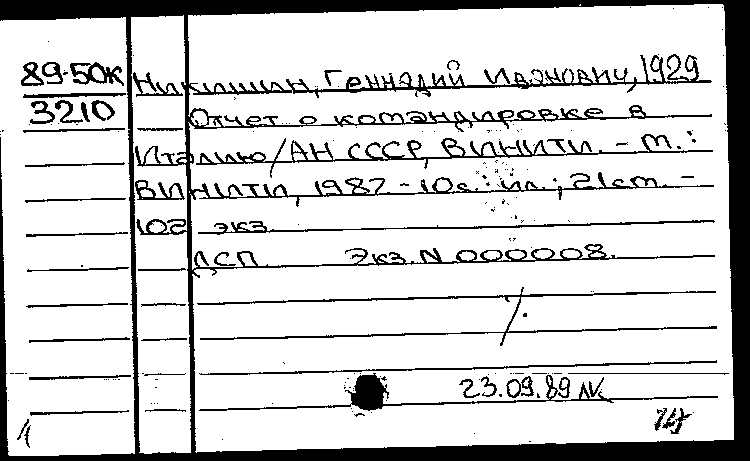 89-50К Никишин, Геннадий Иванович, 1929
3210 Отчет о командировке в
Италию/АН СССР, ВИНИТИ. - М.:
ВИНИТИ, 1987 - 10с.: ил.; 21см. -
102 экз
ДСП Экз. N 000008.
23.09.89